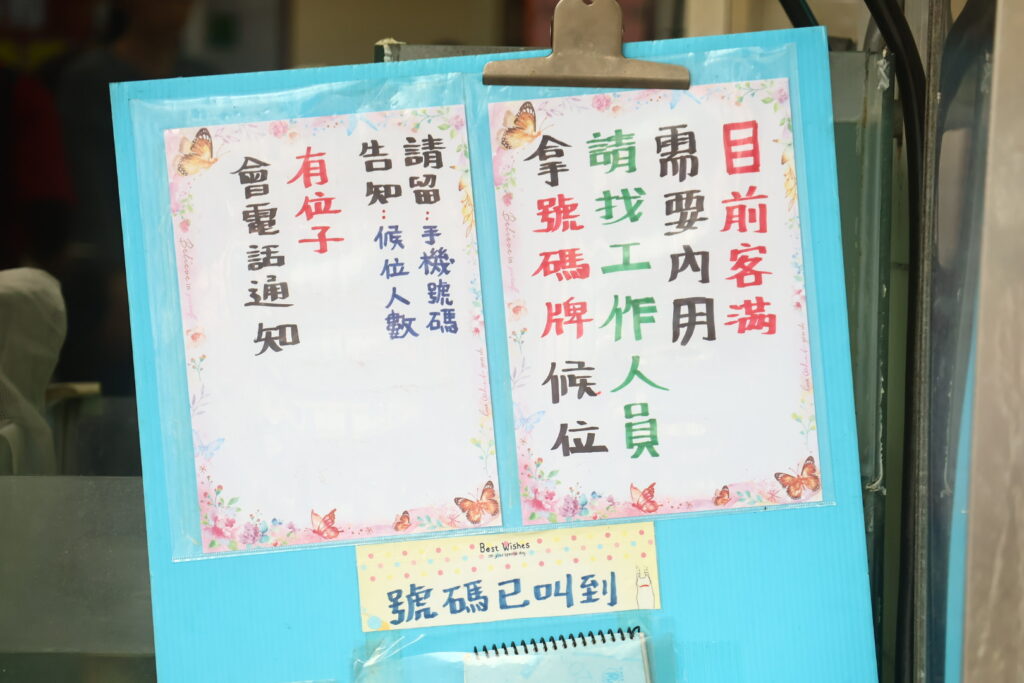 目前客滿
需要內用
請找工作人員
拿號碼牌候位
請留：手機號碼
告知：候位人數
有位子
會電話通知
Best Wishes
號碼已叫到
Believe in